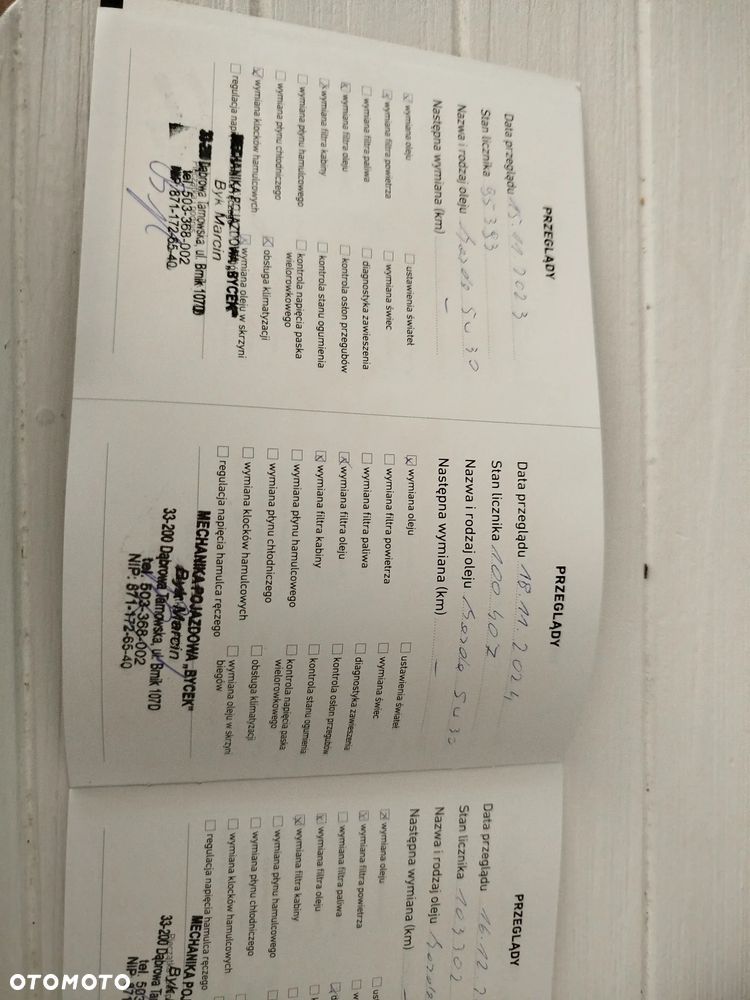 PRZEGLĄDY
Data przeglądu 15.11.2023
Stan licznika 95393
Nazwa i rodzaj oleju 5w30
Następna wymiana (km) –
☒ wymiana oleju
☐ ustawienia świateł
☒ wymiana filtra powietrza
☐ wymiana świec
☐ wymiana filtra paliwa
☐ diagnostyka zawieszenia
☒ wymiana filtra oleju
☐ kontrola osłon przegubów
☒ wymiana filtra kabiny
☐ kontrola stanu ogumienia
☐ wymiana płynu hamulcowego
☐ kontrola napięcia paska wielorowkowego
☐ wymiana płynu chłodniczego
☒ obsługa klimatyzacji
☒ wymiana klocków hamulcowych
wymiana oleju w skrzyni
☐ regulacja
MECHANIKA POJAZDOWA „BYCEK"
Byk Marcin
33-200 Dąbrowa Tarnowska, ul. Brnik 107D
tel. 503-368-002
NIP: 871-172-65-40
PRZEGLĄDY
Data przeglądu 18.11.2024
Stan licznika 100407
Nazwa i rodzaj oleju 5w30
Następna wymiana (km) –
☒ wymiana oleju
☐ ustawienia świateł
☐ wymiana filtra powietrza
☐ wymiana świec
☐ wymiana filtra paliwa
☐ diagnostyka zawieszenia
☒ wymiana filtra oleju
☐ kontrola osłon przegubów
☒ wymiana filtra kabiny
☐ kontrola stanu ogumienia
☐ wymiana płynu hamulcowego
☐ kontrola napięcia paska wielorowkowego
☐ wymiana płynu chłodniczego
☐ obsługa klimatyzacji
☐ wymiana klocków hamulcowych
☐ wymiana oleju w skrzyni biegów
☐ regulacja napięcia hamulca ręcznego
MECHANIKA POJAZDOWA „BYCEK"
Byk Marcin
33-200 Dąbrowa Tarnowska, ul. Brnik 107D
tel. 503-368-002
NIP: 871-172-65-40
PRZEGLĄDY
Data przeglądu 16.12.2
Stan licznika 103202
Nazwa i rodzaj oleju
Następna wymiana (km)
☒ wymiana oleju
☒ wymiana filtra powietrza
☐ wymiana filtra paliwa
☒ wymiana filtra oleju
☒ wymiana filtra kabiny
☐ wymiana płynu hamulcowego
☐ wymiana płynu chłodniczego
☐ wymiana klocków hamulcowych
☐ regulacja napięcia hamulca ręcznego
MECHANIKA POJ
Byk
33-200 Dąbrowa
tel. 503
NIP: 871
OTOMOTO